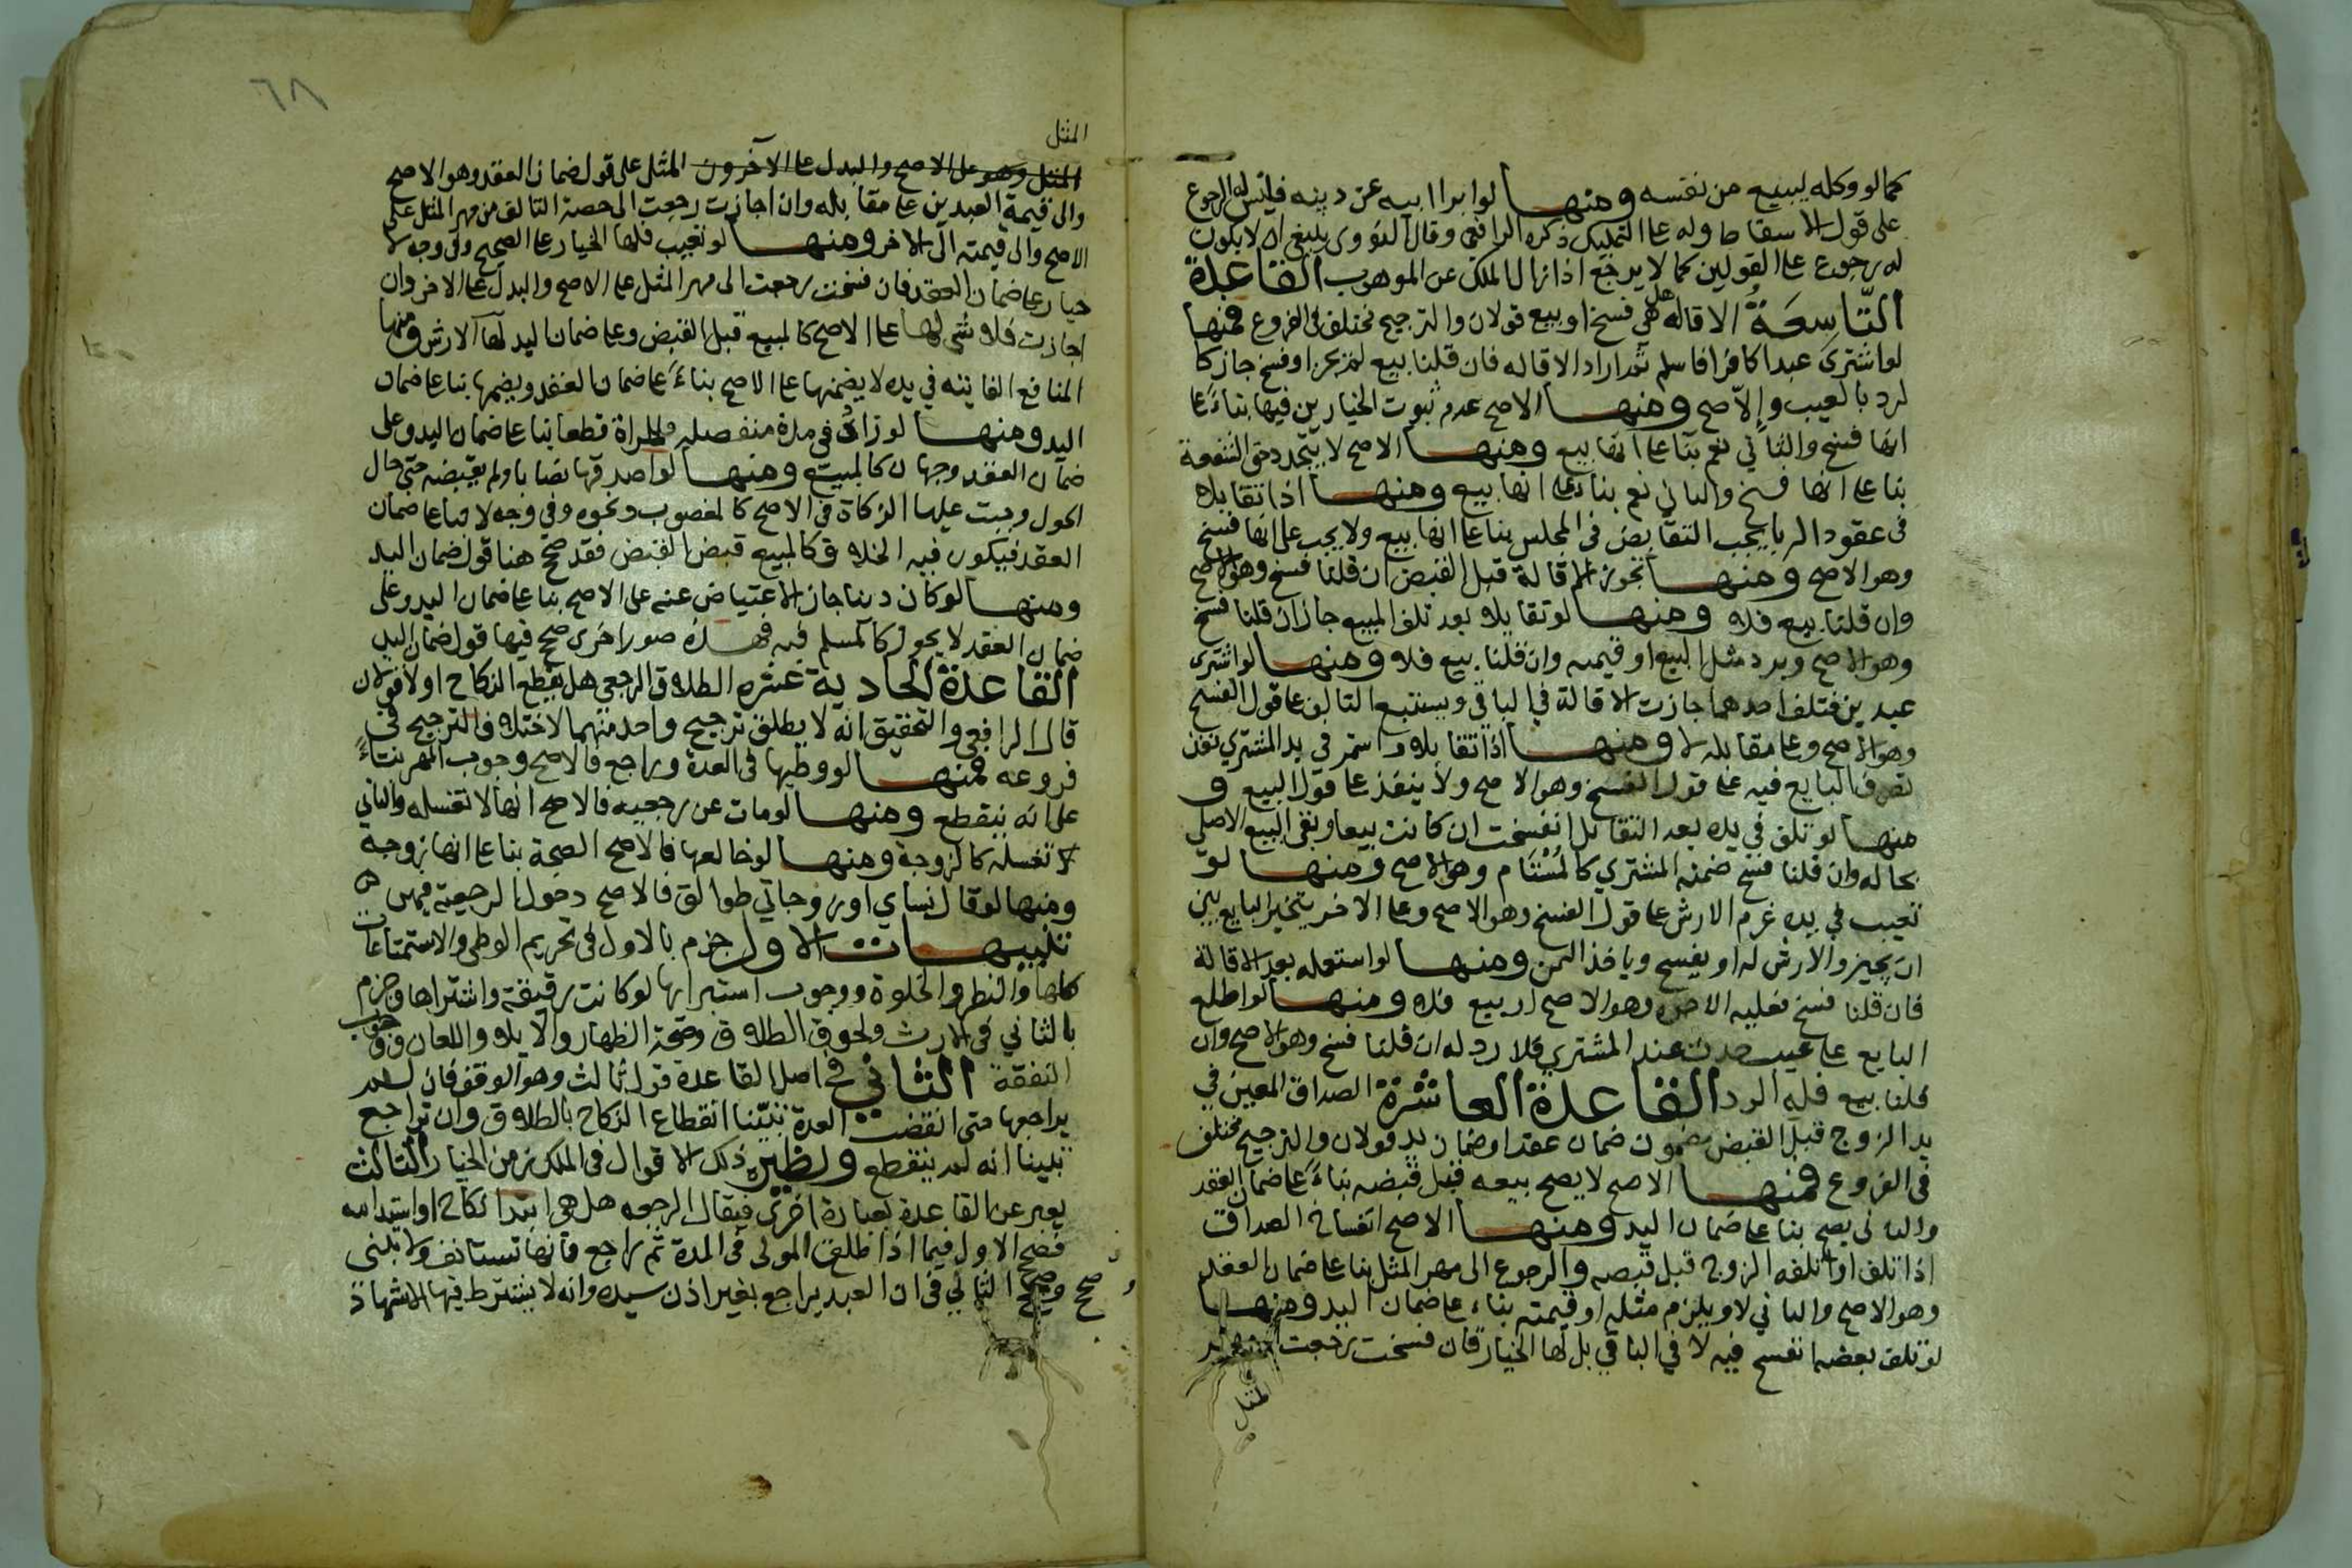 كما لو وكله ليبيع من نفسه ومنها لو ابرا ابيه عن دينه فليس له الرجوع
على قول الاسقاط وله على التمليك ذكره الرافعي وقال النووي ينبغي ان لا يكون
له رجوع على القولين كما لا يرجع اذا زال الملك عن الموهوب القاعدة
التاسعة الاقاله هل هي فسخ او بيع قولان والترجيح مختلف في الفروع فمنها
لو اشترى عبدا كافرا فاسلم ثم اراد الاقاله فان قلنا بيع لم يجز او فسخ جاز كا
لرد بالعيب والاصح ومنها الاصح عدم ثبوت الخيارين فيها بناءً على
انها فسخ والثاني نعم بنا على انها بيع ومنها الاصح لا يتجدد حق الشفعة
بنا على انها فسخ والثاني نعم بناء على انها بيع ومنها اذا تقايلا
في عقود الربا يجب التقابض في المجلس بنا على انها بيع ولا يجب على انها فسخ
وهو الاصح ومنها تجوز الاقالة قبل القبض ان قلنا فسخ وهو الاصح
وان قلنا بيع فلا ومنها لو تقايلا بعد تلف المبيع جاز ان قلنا فسخ
وهو الاصح ويرد مثل المبيع او قيمته وان قلنا بيع فلا ومنها لو اشترى
عبدين فتلف احدهما جازت الاقالة في الباقي ويستتبع التالف على قول الفسخ
وهو الاصح وعلى مقابله لا ومنها اذا تقايلا واستمر في يد المشتري نفذ
تصرف البايع فيه على قول الفسخ وهو الاصح ولا ينفذ على قول البيع و
منها لو تلف في يده بعد التقايل انفسخت ان كانت بيعا وبقي البيع الاصلي
بحاله وان قلنا فسخ ضمنه المشتري كالمُسْتَام وهو الاصح ومنها لو
تعيب في يده غرم الارش على قول الفسخ وهو الاصح وعلى الاخر يتخير البايع بين
ان يجيز ولا ارش له او يفسخ وياخذ الثمن ومنها لو استعمله بعد الاقالة
فان قلنا فسخ فعليه الاجره وهو الاصح او بيع فلا ومنها لو اطلع
البايع على عيب حدث عند المشتري فلا رد له ان قلنا فسخ وهو الاصح وان
قلنا بيع فله الرد القاعدة العاشرة الصداق المعين في
يد الزوج قبل القبض مضمون ضمان عقد او ضمان يد قولان والترجيح مختلف
في الفروع فمنها الاصح لا يصح بيعه قبل قبضه بناءً على ضمان العقد
والثاني يصح بنا على ضمان اليد ومنها الاصح انفساخ الصداق
اذا تلف او اتلفه الزوج قبل قبضه والرجوع الى مهر المثل بنا على ضمان العقد
وهو الاصح والثاني لا ويلزم مثله او قيمته بناء على ضمان اليد ومنها
لو تلف بعضه انفسخ فيه لا في الباقي بل لها الخيار فان فسخت رجعت
المثل
٦٨
المثل
المثل وهو على الاصح والبدل على الآخر ون المثل على قول ضمان العقد وهو الاصح
والى قيمة العبدين على مقابله وان اجازت رجعت الى حصة التالف من مهر المثل على
الاصح والى قيمته الى الاخر ومنها لو تعيب فلها الخيار على الصحيح وفي وجه لا
خيار على ضمان العقد فان فسخت رجعت الى مهر المثل على الاصح والبدل على الاخر وان
اجازت فلا شي لها على الاصح كالمبيع قبل القبض وعلى ضمان اليد لها الارش ومنها
المنافع الفايته في يده لا يضمنها على الاصح بناءً على ضمان العقد ويضمنها بنا على ضمان
اليد ومنها لو زاد في مدة منفصله فللمراة قطعا بنا على ضمان اليد وعلى
ضمان العقد وجهان كالمبيع ومنها لو اصدقها نصابا ولم يقبضه حتى حال
الحول وجبت عليها الزكاة في الاصح كالمغصوب ونحوه وفي وجه لا بنا على ضمان
العقد فيكون فيه الخلاف كالمبيع قبض القبض فقد صح هنا قول ضمان اليد
ومنها لو كان دينا جاز الاعتياض عنه على الاصح بنا على ضمان اليد وعلى
ضمان العقد لا يجوز كالمسلم فيه فهذه صور اخرى صح فيها قول ضمان اليد
القاعدة الحادية عشره الطلاق الرجعي هل يقطع النكاح اولا قولان
قال الرافعي والتحقيق انه لا يطلق ترجيح واحد منهما لاختلاف الترجيح في
فروعه فمنها لو وطيها في العدة وراجع فالاصح وجوب المهر بناءً
على انه ينقطع ومنها لو مات عن رجعيه فالاصح انها لا تغسله والثاني
لا تغسله كالزوجة ومنها لو خالعها فالاصح الصحة بنا على انها زوجة
ومنها لو قال نساي او زوجاتي طوالق فالاصح دخول الرجعية فيهن
تنبيهات الاول جزم بالاول في تحريم الوطي والاستمتاعات
كلها والنظر والخلوة ووجوب استبرايها لو كانت رقيقة واشتراها وجزم
بالثاني في الارث ولحوق الطلاق وصحة الظهار والايلا واللعان ووجوب
النفقة الثاني في اصل القاعدة قول ثالث وهو الوقف فان لم
يراجعها حتى انقضت العدة تبيّنا انقطاع النكاح بالطلاق وان راجع
تبينا انه لم ينقطع ونظير ذلك الاقوال في الملك زمن الخيار الثالث
يعبر عن القاعدة بعبارة اخرى فيقال الرجعه هل هو ابتدا نكاح او استدامه
فصح الاول فيما اذا طلق المولى في المدة ثم راجع فانها تستانف ولا تبنى
صح وصح الثاني في ان العبد يراجع بغير اذن سيده وانه لا يشترط فيها الاشهاد